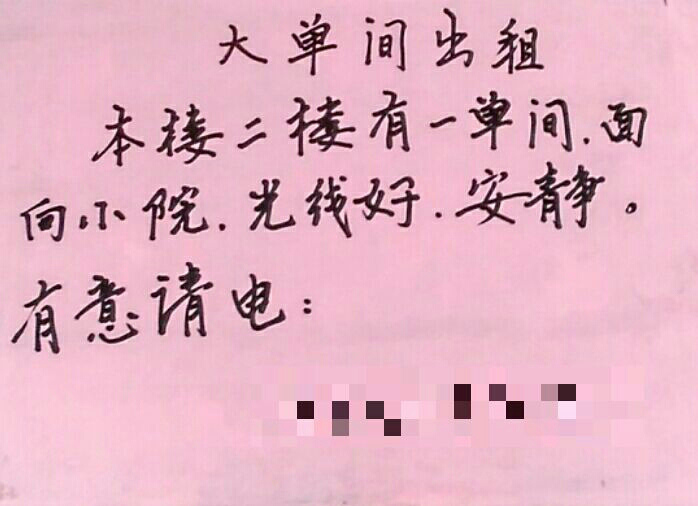 大单间出租
本楼二楼有一单间.面
向小院.光线好.安静。
有意请电：